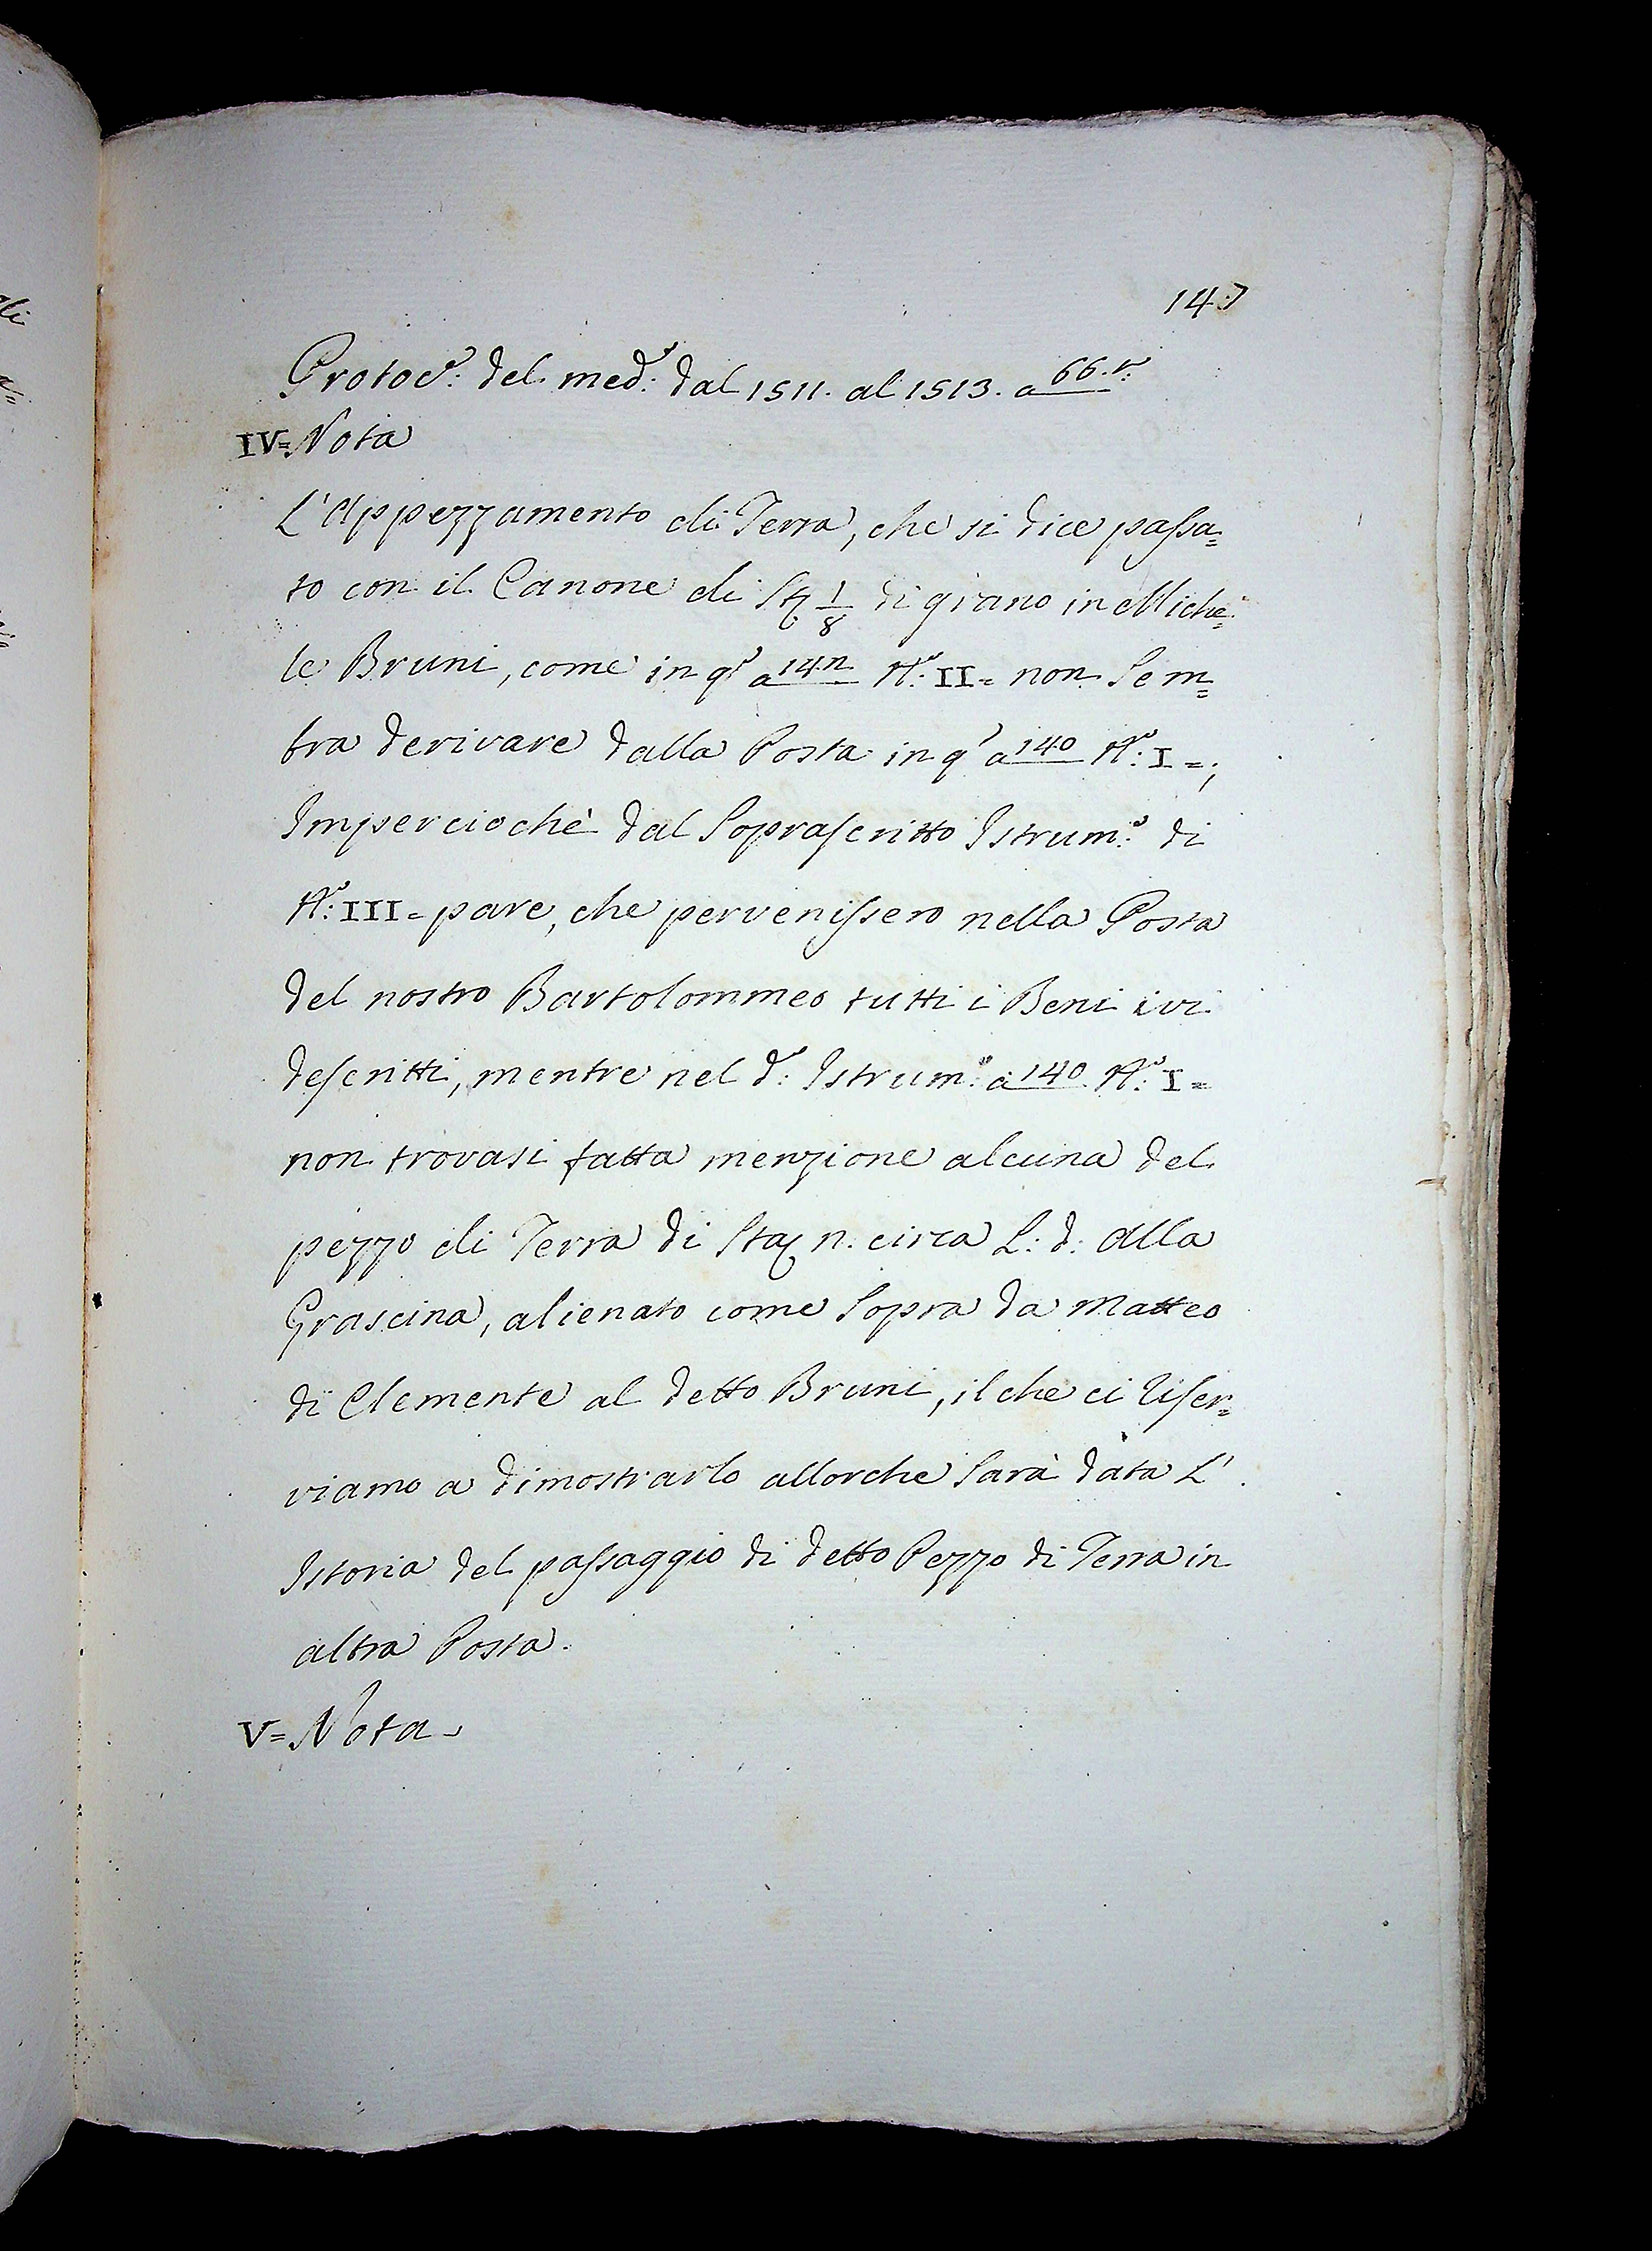 147
Protoc.º: del med.º: dal 1511. al 1513. a 66. v.º
IV= Nota
L'Appezzamento di Terra, che si dice passa=
to con il Canone di St. 1/8 di grano in Miche=
le Bruni, come in q.º a 14n N.º: II= non Sem=
bra derivare dalla Posta in q.º a 140 N.º: I=;
Imperciochè dal Soprascritto Istrum.º di
N.º: III= pare, che pervenissero nella Posta
del nostro Bartolommeo tutti i Beni ivi
descritti, mentre nel d.º: Istrum.º a 140. N.º: I=
non trovasi fatta menzione alcuna del
pezzo di Terra di Sta. n. circa L: d: alla
Grascina, alienato come Sopra da Matteo
di Clemente al detto Bruni, il che ci riser=
viamo a dimostrarlo allorche Sarà data L'
Istoria del passaggio di detto Pezzo di Terra in
altra Posta.
V= Nota